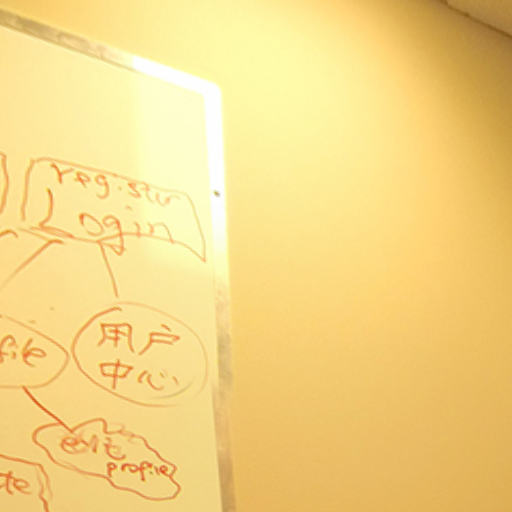 register
Login
file
用户
中心
edit
profile
te